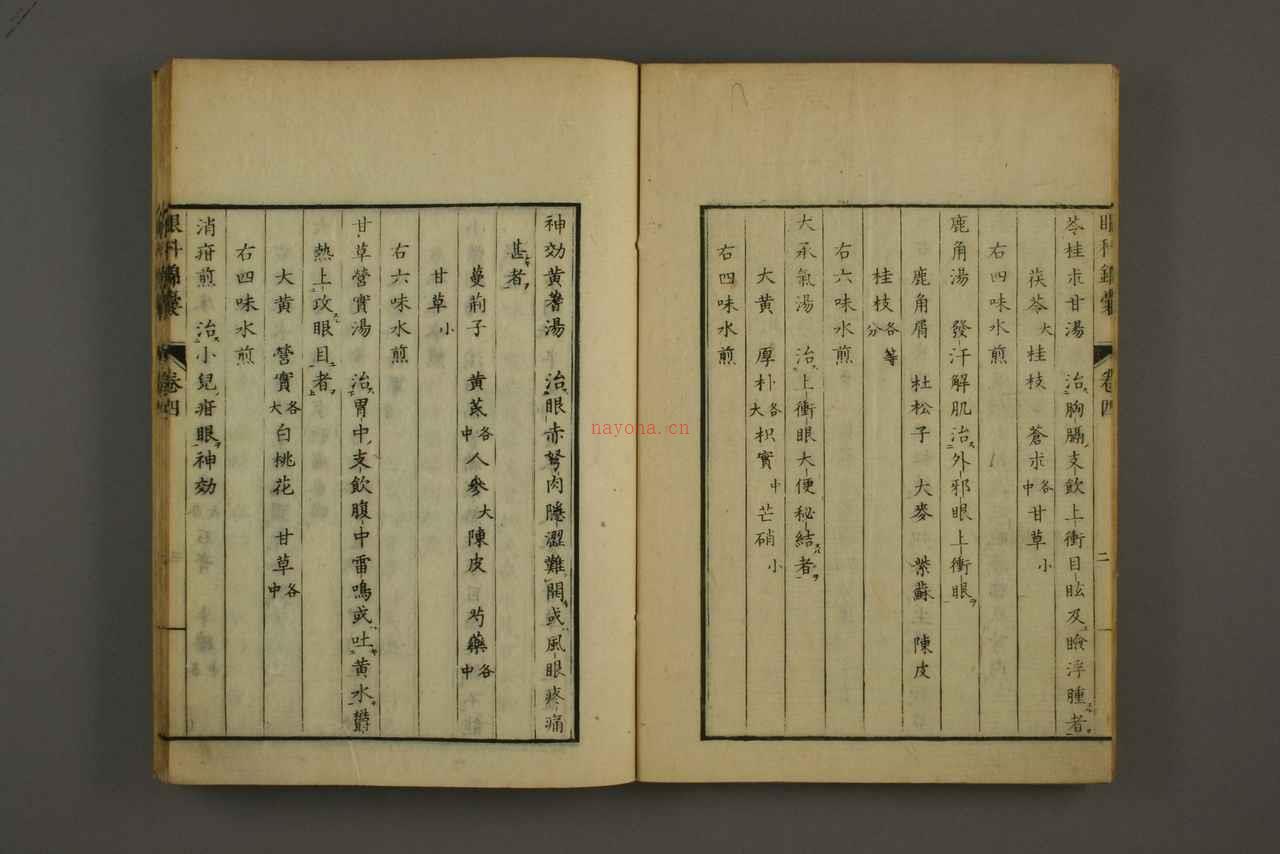 苓桂朮甘湯　治胸膈支飲上衝目眩及瞼浮腫者
茯苓大　桂枝　蒼朮各中　甘草小
右四味水煎
鹿角湯　發汗解肌治外邪眼上衝眼
鹿角屑　杜松子　大麥　紫蘇　陳皮
桂枝各等分
右六味水煎
大承氣湯　治上衝眼大便秘結者
大黃　厚朴各大　枳實中　芒硝小
右四味水煎
眼科錦囊　卷四　二
神効黃蓍湯　治眼赤努肉隱澀難開或風眼疼痛
甚者
蔓荊子　黃芪各中　人參大　陳皮　芍藥各中
甘草小
右六味水煎
甘草營實湯　治胃中支飲腹中雷鳴或吐黃水欝
熱上攻眼目者
大黃　營實各大　白桃花　甘草各中
右四味水煎
消疳煎　治小兒疳眼神効
眼科錦囊　卷四
nayona.cn